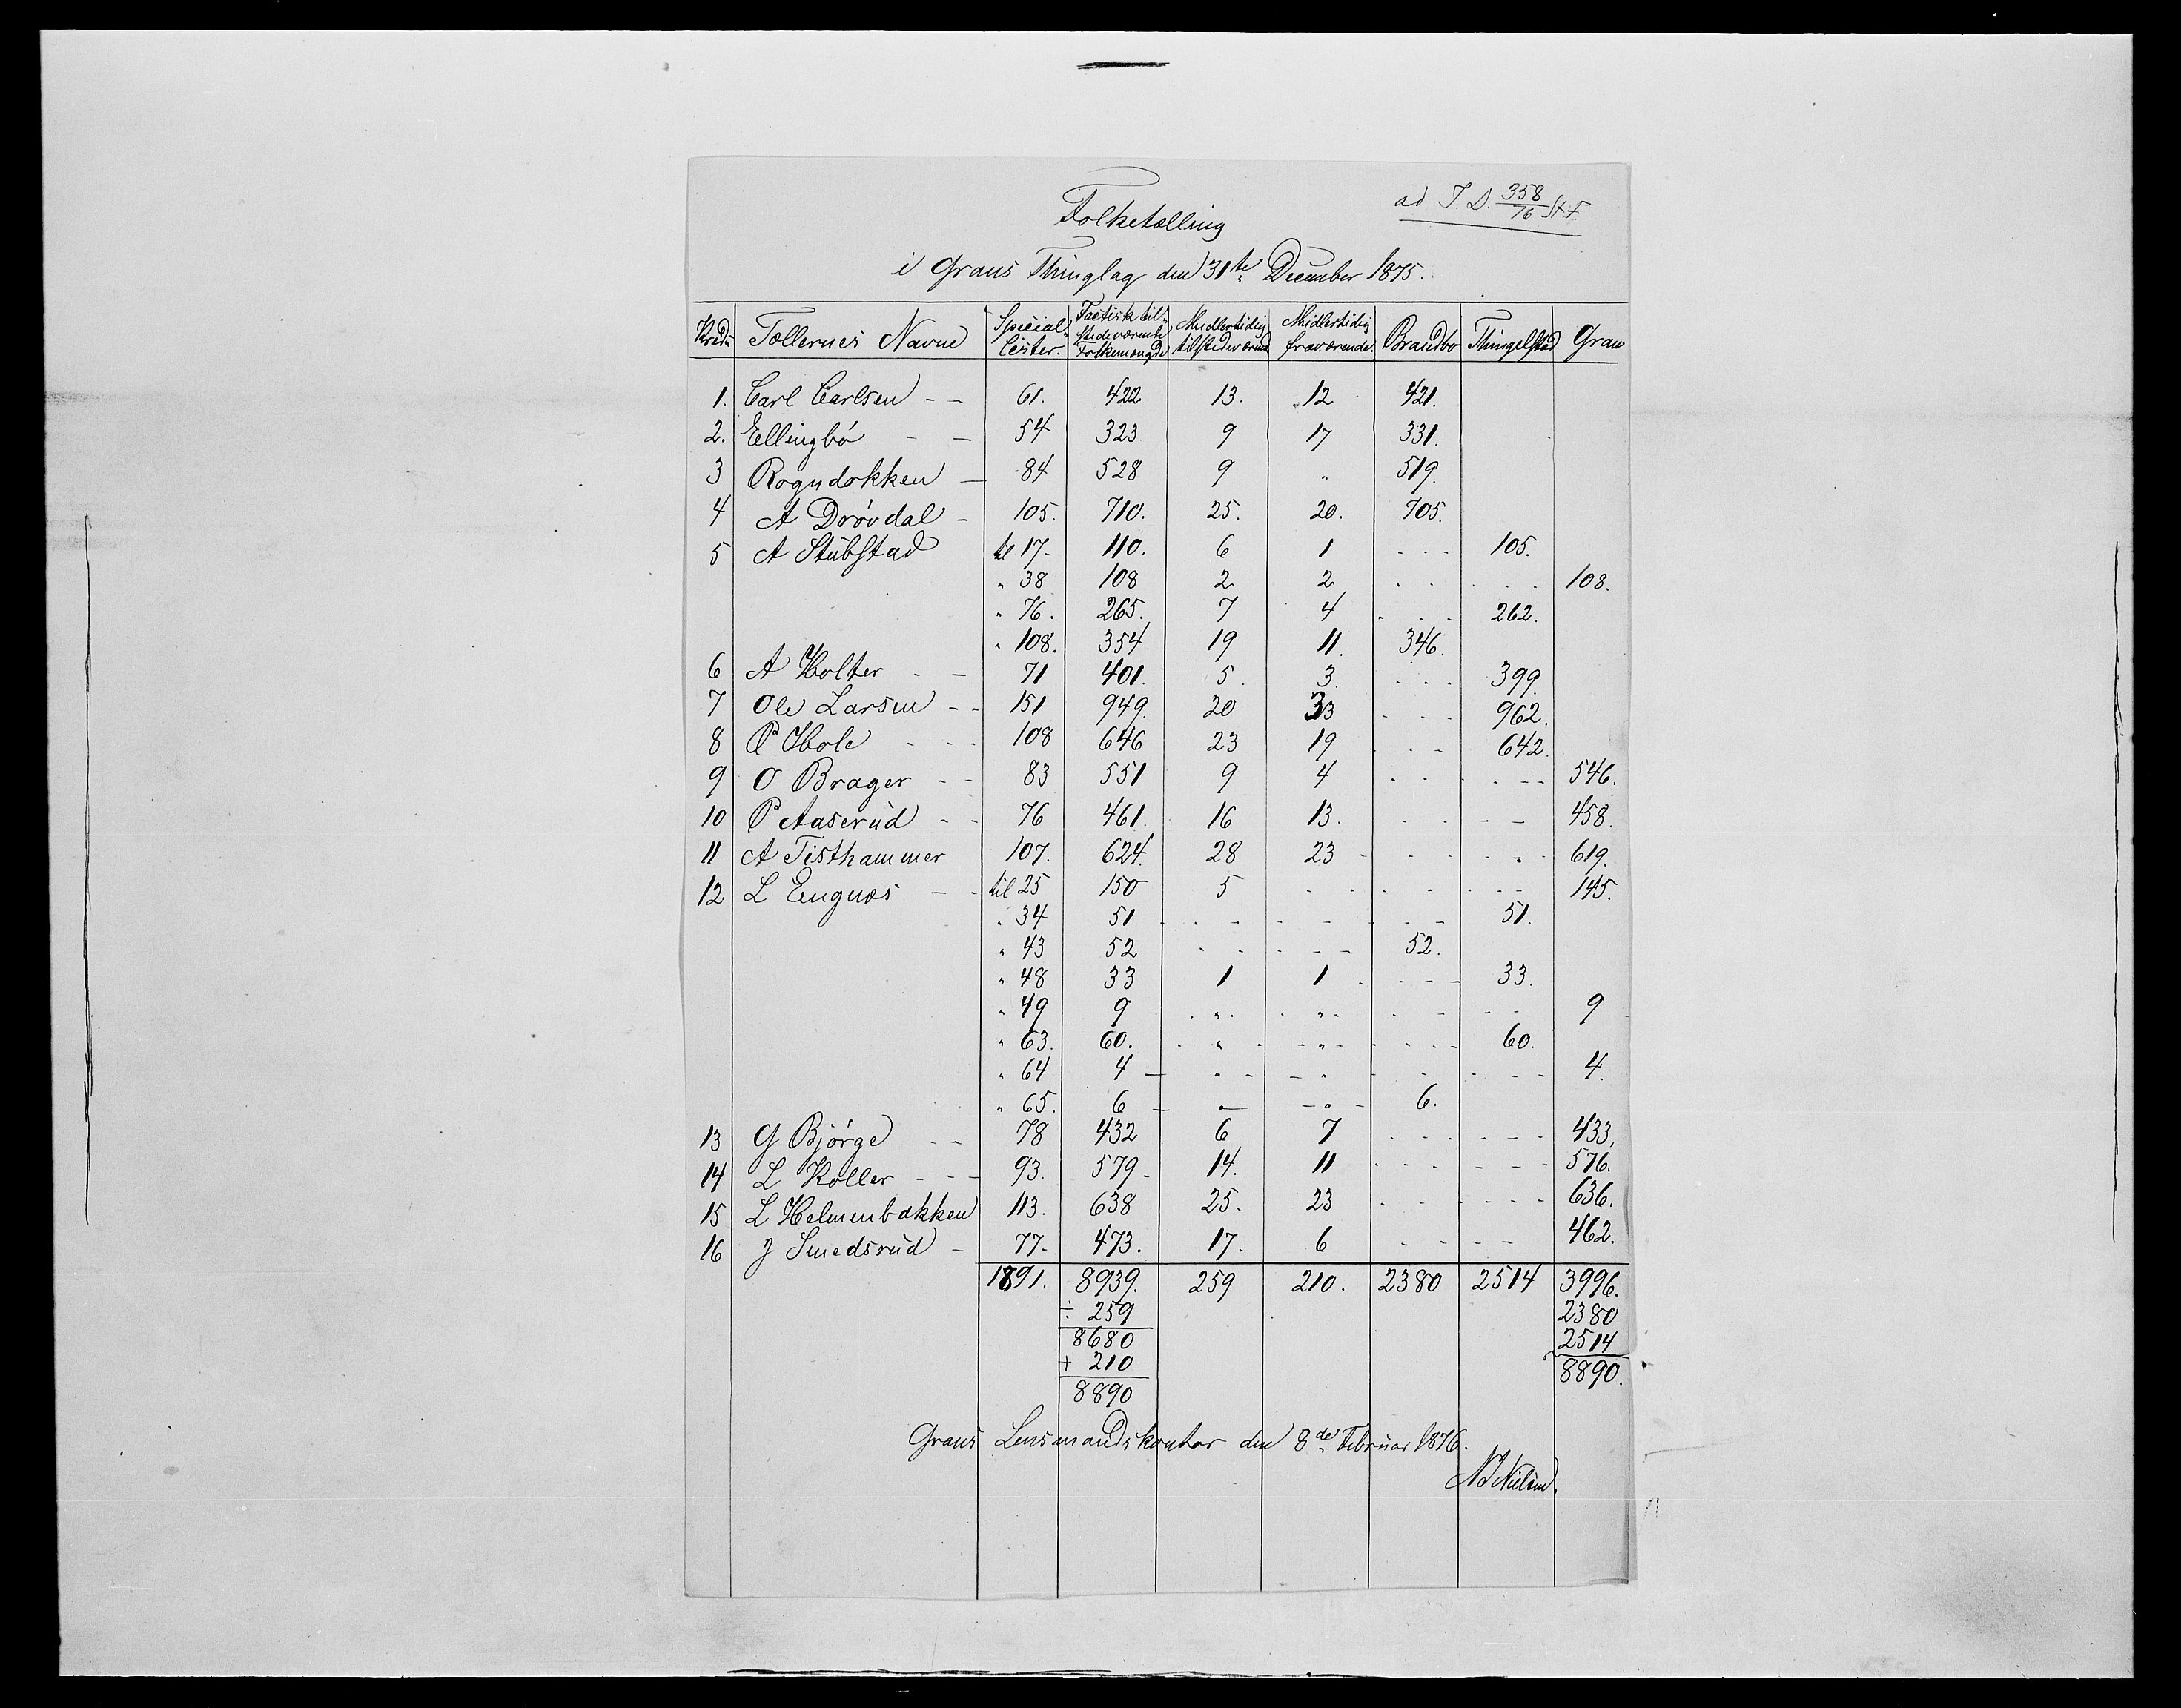 ad J. D. 358/76 St. F.
Folketælling
i Grans Thinglag den 31te December 1875.
Kreds Tællernes Navne Special Lister. Factisk tilstedeværende Folkemængde Midlertidig tilstedeværende Midlertidig fraværende. Brandbo Thingelstad Gran
1. Carl Carlsen - - 61. 422 13. 12 421.
2. Ellingbö - - 54 323 9 17 331.
3 Rogndokken - 84 528 9 " 519.
4 A Drövdal - 105. 710. 25. 20. 705.
5 A Stubstad til 17. 110. 6 1 - - - 105.
" 38 108 2 2 - - - - - 108.
" 76. 265. 7 4 - - - 262.
" 108. 354 19 11. 346.
6 A Holter - - 71 401. 5. 3. - - - 399.
7 Ole Larsen - - 151 949. 20 33 - - - 962.
8 P Hole - - - 108 646 23 19 - - - 642.
9 O Brager - - 83 551 9 4 - - - - - 546.
10 P Aaserud - - 76 461. 16 13. - - - - 458.
11 A Tisthammer 107. 624. 28 23 - - - - " - 619.
12 L Engnæs - - til 25 150 5 - - - - - - - 145.
" 34 51 - - - - - - - 51.
" 43 52 - - - - - 52.
" 48 33 1 1 - - - - 33.
" 49 9 - " - - " - - - - - 9
" 63. 60. - " - - " - - - - - 60.
" 64 4 - " - - " - - - - - 4.
" 65. 6 - " - " - 6.
13 G Bjørge - - 78 432 6 7 - - - - - - 433.
14 L Koller - - - 93. 579 - 14. 11 - - - - - - 576.
15 L Helmenbakken 113. 638 25. 23 - - - - - - 636.
16 J Smedsrud - 77. 473. 17. 6 - - - - 462.
1891. 8939. 259 210. 2380 2514 3996.
÷ 259 2380
8680 2514
+ 210 8890.
8890
Grans Lensmandskontor den 8de Februar 1876.
N Nielsen.